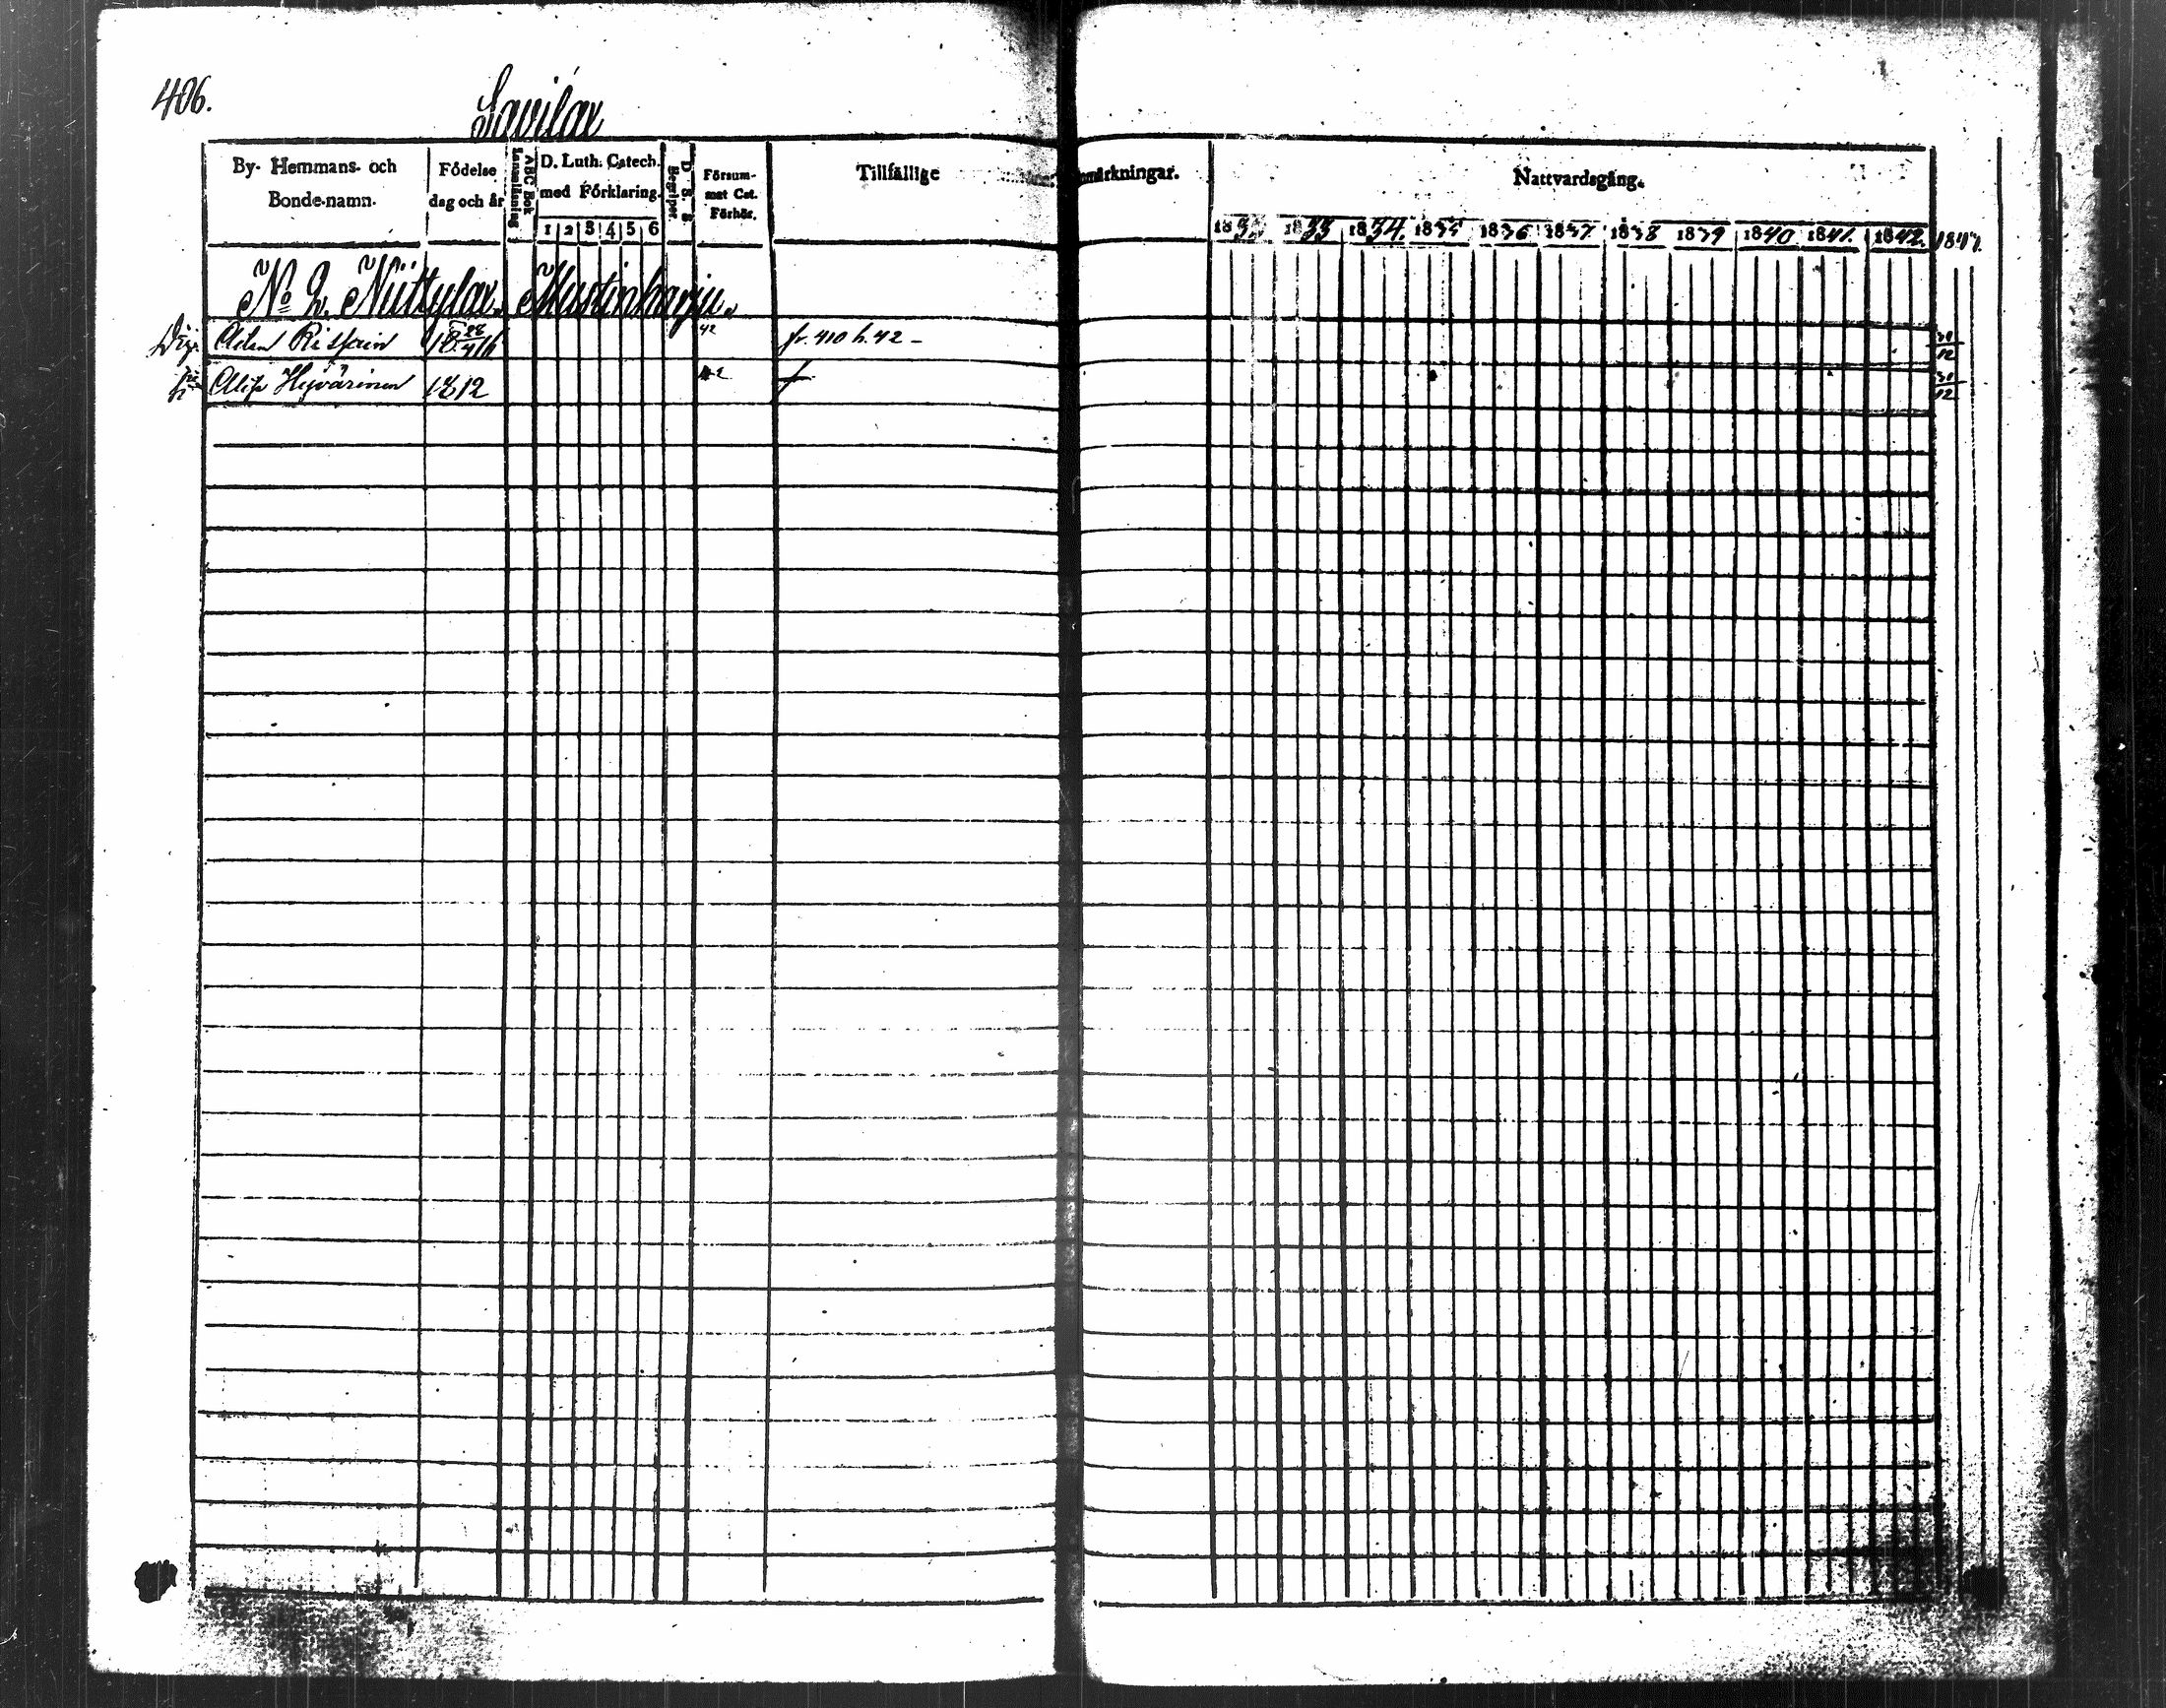 406.
Savilax
By- Hemmans- och Bonde-namn.
Födelse dag och år
ABC Bok Innanläsning
D. Luth. Catech. med Förklaring.
1 2 3 4 5 6
D. S. s Begriper.
Försummat Cat. Förhör.
Tillfällige Anmärkningar.
Nattvardsgång.
1832 1833 1834. 1835 1836 1837 1838 1839 1840 1841. 1842. 1843.
No 2. Niittylax. Mustinharju.
Adam Rissain 18 28/4 16 42 fr. 410 h. 42 - 30/12
h Hyvärinen 1812 42 30/12